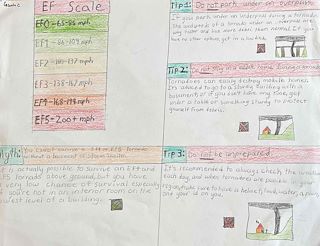 EF Scale
EF0 - 65-85 mph
EF1 - 86-109 mph
EF2 - 137 mph
EF3 - 138-167 mph
EF4 - 168-199 mph
EF5 - 200+ mph
Tip 1: Do not park under an overpass
If you park under an underpass during a tornado
the windwords of a tornado under an underpass are
way faster and has more debris than normal. If you
have no other option, get in a
Tip 2: Do not stay in a mobile home during a tornado
Tornadoes can easily destroy mobile homes.
It's advised to go to a sturdy building with a
basement, or if you can't find any, get
under a table or something sturdy to protect
yourself from debris.
Myth: You cannot survive a EF4 or EF5 Tornado
without a basement or Storm Shelter.
It is actually possible to survive an EF4 and
EF5 Tornado above ground, but you have
a very low chance of survival especially
if you're not in an interior room on the
lowest level of a building.
Tip 3: Do not be unprepared
It's recommended to always check the weather
each day, and when tornadoes are
make sure to have a helmet, food, water, a
and your id on you.